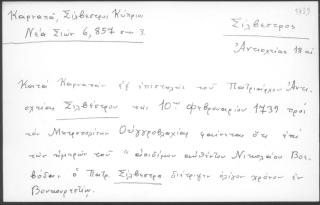 Καρνατᾶ, Σίλβεστρος Κύπριος
Νέα Σιών 6, 857 σημ 3.
1739
Σίλβεστρος
Ἀντιοχείας 18 αἰ
Κατὰ Καρνατᾶν ἐξ ἐπιστολῆς τοῦ Πατριάρχου Ἀντι-
οχείας Σιλβέστρου τῆς 10ης Φεβρουαρίου 1739 πρὸς
τὸν Μητροπολίτην Οὐγγροβλαχίας φαίνεται ὅτι ἐπὶ
τῶν ἡμερῶν τοῦ "ἀοιδίμου αὐθέντου Νικολάου Βοε-
βόδα, ὁ Πατρ. Σίλβεστρος διέτριψεν ὀλίγον χρόνον ἐν
Βουκουρεστίῳ.